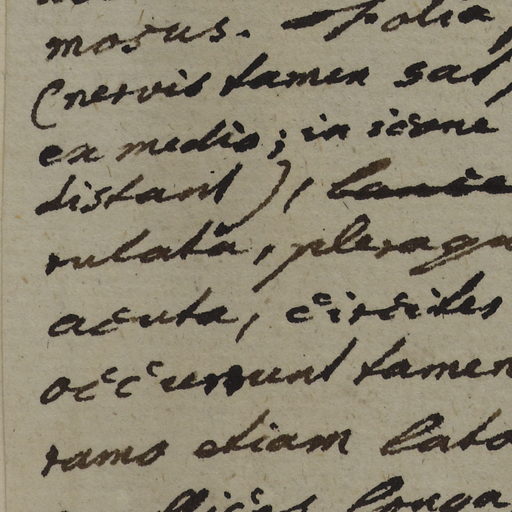 mosus. Folia
(nervis tamen sat
ex medio; in icone
distant),
rulata, pleraq
acuta, circiter
occurrunt tamen
ramo etiam lato
longa